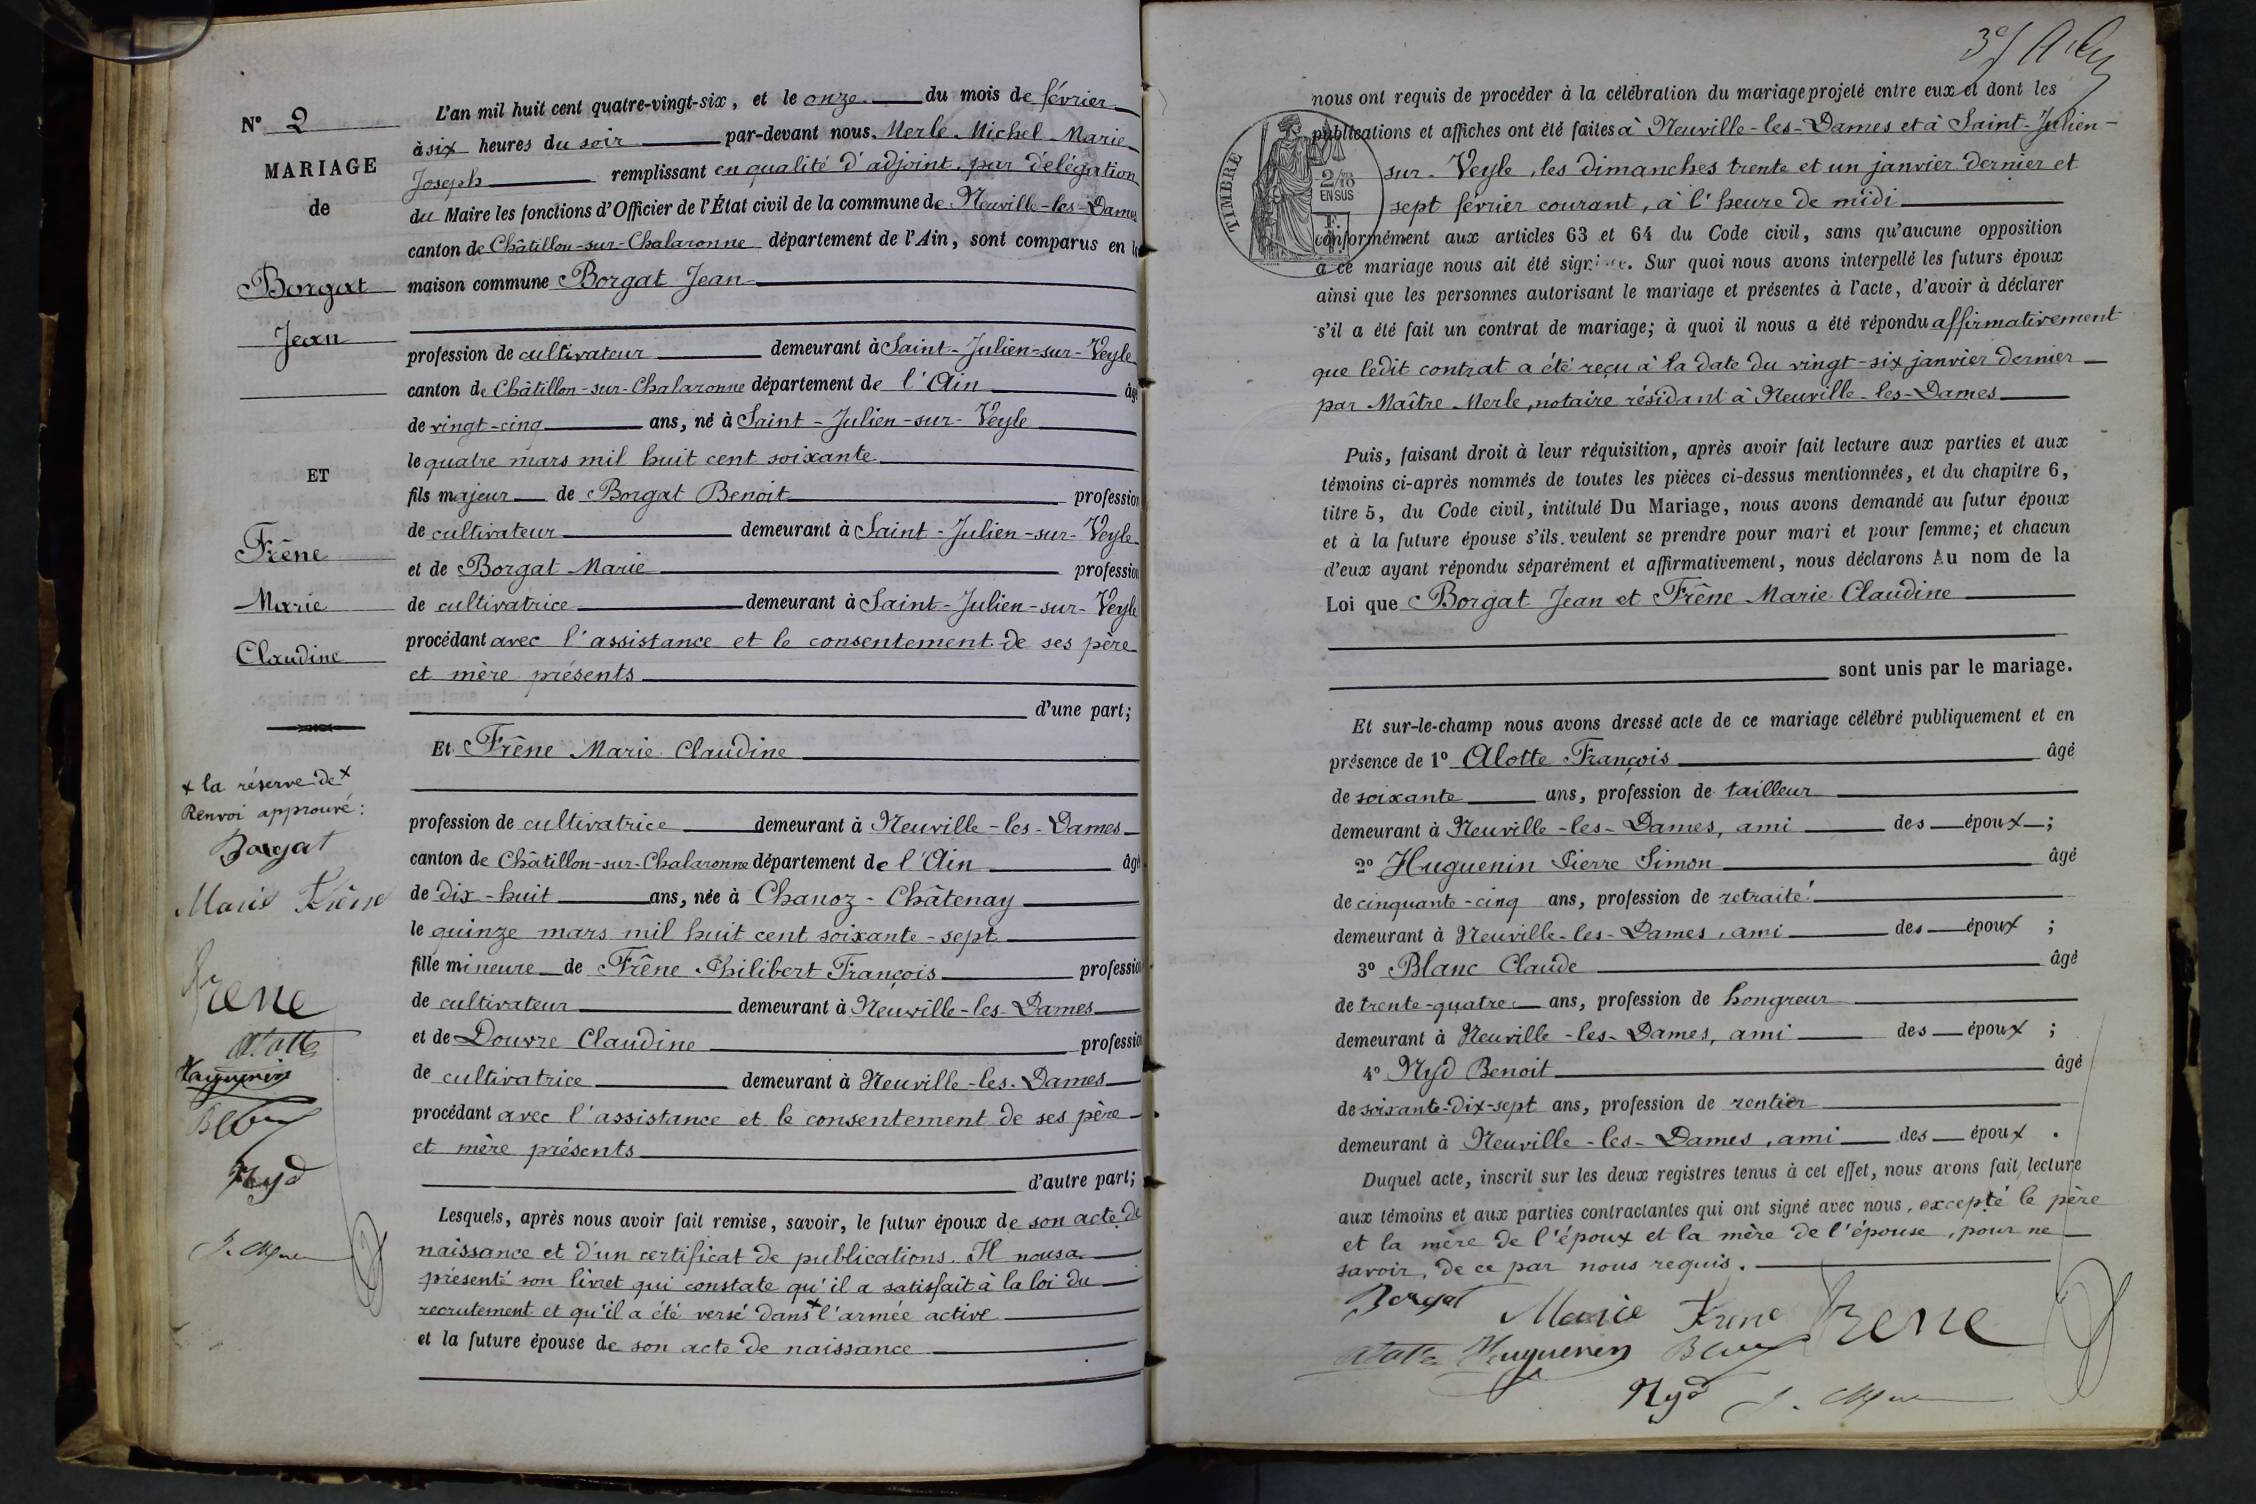 N° 2
MARIAGE
de
Borgat
Jean
ET
Frêne
Marie
Claudine
+ la réserve de +
Renvoi approuvé :
Borgat
Marie Frêne
Frene
Alotte
Huguenin
Blanc
Nyd
L'an mil huit cent quatre-vingt-six, et le onze du mois de février
à six heures du soir par-devant nous, Merle Michel Marie
Joseph remplissant en qualité d'adjoint, par délégation
du Maire les fonctions d'Officier de l'État civil de la commune de Neuville-les-Dames
canton de Châtillon-sur-Chalaronne département de l'Ain, sont comparus en la
maison commune Borgat Jean
profession de cultivateur demeurant à Saint-Julien-sur-Veyle
canton de Châtillon-sur-Chalaronne département de l'Ain âgé
de vingt-cinq ans, né à Saint-Julien-sur-Veyle
le quatre mars mil huit cent soixante
fils majeur de Borgat Benoit profession
de cultivateur demeurant à Saint-Julien-sur-Veyle
et de Borgat Marie profession
de cultivatrice demeurant à Saint-Julien-sur-Veyle
procédant avec l'assistance et le consentement de ses père
et mère présents
d'une part;
Et Frêne Marie Claudine
profession de cultivatrice demeurant à Neuville-les-Dames
canton de Châtillon-sur-Chalaronne département de l'Ain âgé
de dix-huit ans, née à Chanoz-Châtenay
le quinze mars mil huit cent soixante-sept
fille mineure de Frêne Philibert François profession
de cultivateur demeurant à Neuville-les-Dames
et de Douvre Claudine profession
de cultivatrice demeurant à Neuville-les-Dames
procédant avec l'assistance et le consentement de ses père
et mère présents
d'autre part;
Lesquels, après nous avoir fait remise, savoir, le futur époux de son acte de
naissance et d'un certificat de publications. Il nous a
présenté son livret qui constate qu'il a satisfait à la loi du
recrutement et qu'il a été versé dans + l'armée active
et la future épouse de son acte de naissance
TIMBRE
2/10
EN SUS
nous ont requis de procéder à la célébration du mariage projeté entre eux et dont les
publications et affiches ont été faites à Neuville-les-Dames et à Saint-Julien-
sur-Veyle, les dimanches trente et un janvier dernier et
sept février courant, à l'heure de midi
conformément aux articles 63 et 64 du Code civil, sans qu'aucune opposition
à ce mariage nous ait été signifiée. Sur quoi nous avons interpellé les futurs époux
ainsi que les personnes autorisant le mariage et présentes à l'acte, d'avoir à déclarer
s'il a été fait un contrat de mariage; à quoi il nous a été répondu affirmativement
que ledit contrat a été reçu à la date du vingt-six janvier dernier
par Maître Merle, notaire résidant à Neuville-les-Dames
Puis, faisant droit à leur réquisition, après avoir fait lecture aux parties et aux
témoins ci-après nommés de toutes les pièces ci-dessus mentionnées, et du chapitre 6,
titre 5, du Code civil, intitulé Du Mariage, nous avons demandé au futur époux
et à la future épouse s'ils veulent se prendre pour mari et pour femme; et chacun
d'eux ayant répondu séparément et affirmativement, nous déclarons Au nom de la
Loi que Borgat Jean et Frêne Marie Claudine
sont unis par le mariage.
Et sur-le-champ nous avons dressé acte de ce mariage célébré publiquement et en
présence de 1° Alotte François âgé
de soixante ans, profession de tailleur
demeurant à Neuville-les-Dames, ami des époux ;
2° Huguenin Pierre Simon âgé
de cinquante-cinq ans, profession de retraité
demeurant à Neuville-les-Dames, ami des époux ;
3° Blanc Claude âgé
de trente-quatre ans, profession de hongreur
demeurant à Neuville-les-Dames, ami des époux ;
4° Nyd Benoit âgé
de soixante-dix-sept ans, profession de rentier
demeurant à Neuville-les-Dames, ami des époux .
Duquel acte, inscrit sur les deux registres tenus à cet effet, nous avons fait lecture
aux témoins et aux parties contractantes qui ont signé avec nous, excepté le père
et la mère de l'époux et la mère de l'épouse, pour ne
savoir, de ce par nous requis.
Borgat Marie Frene Frene
Alotte Huguenin Blanc
Nyd